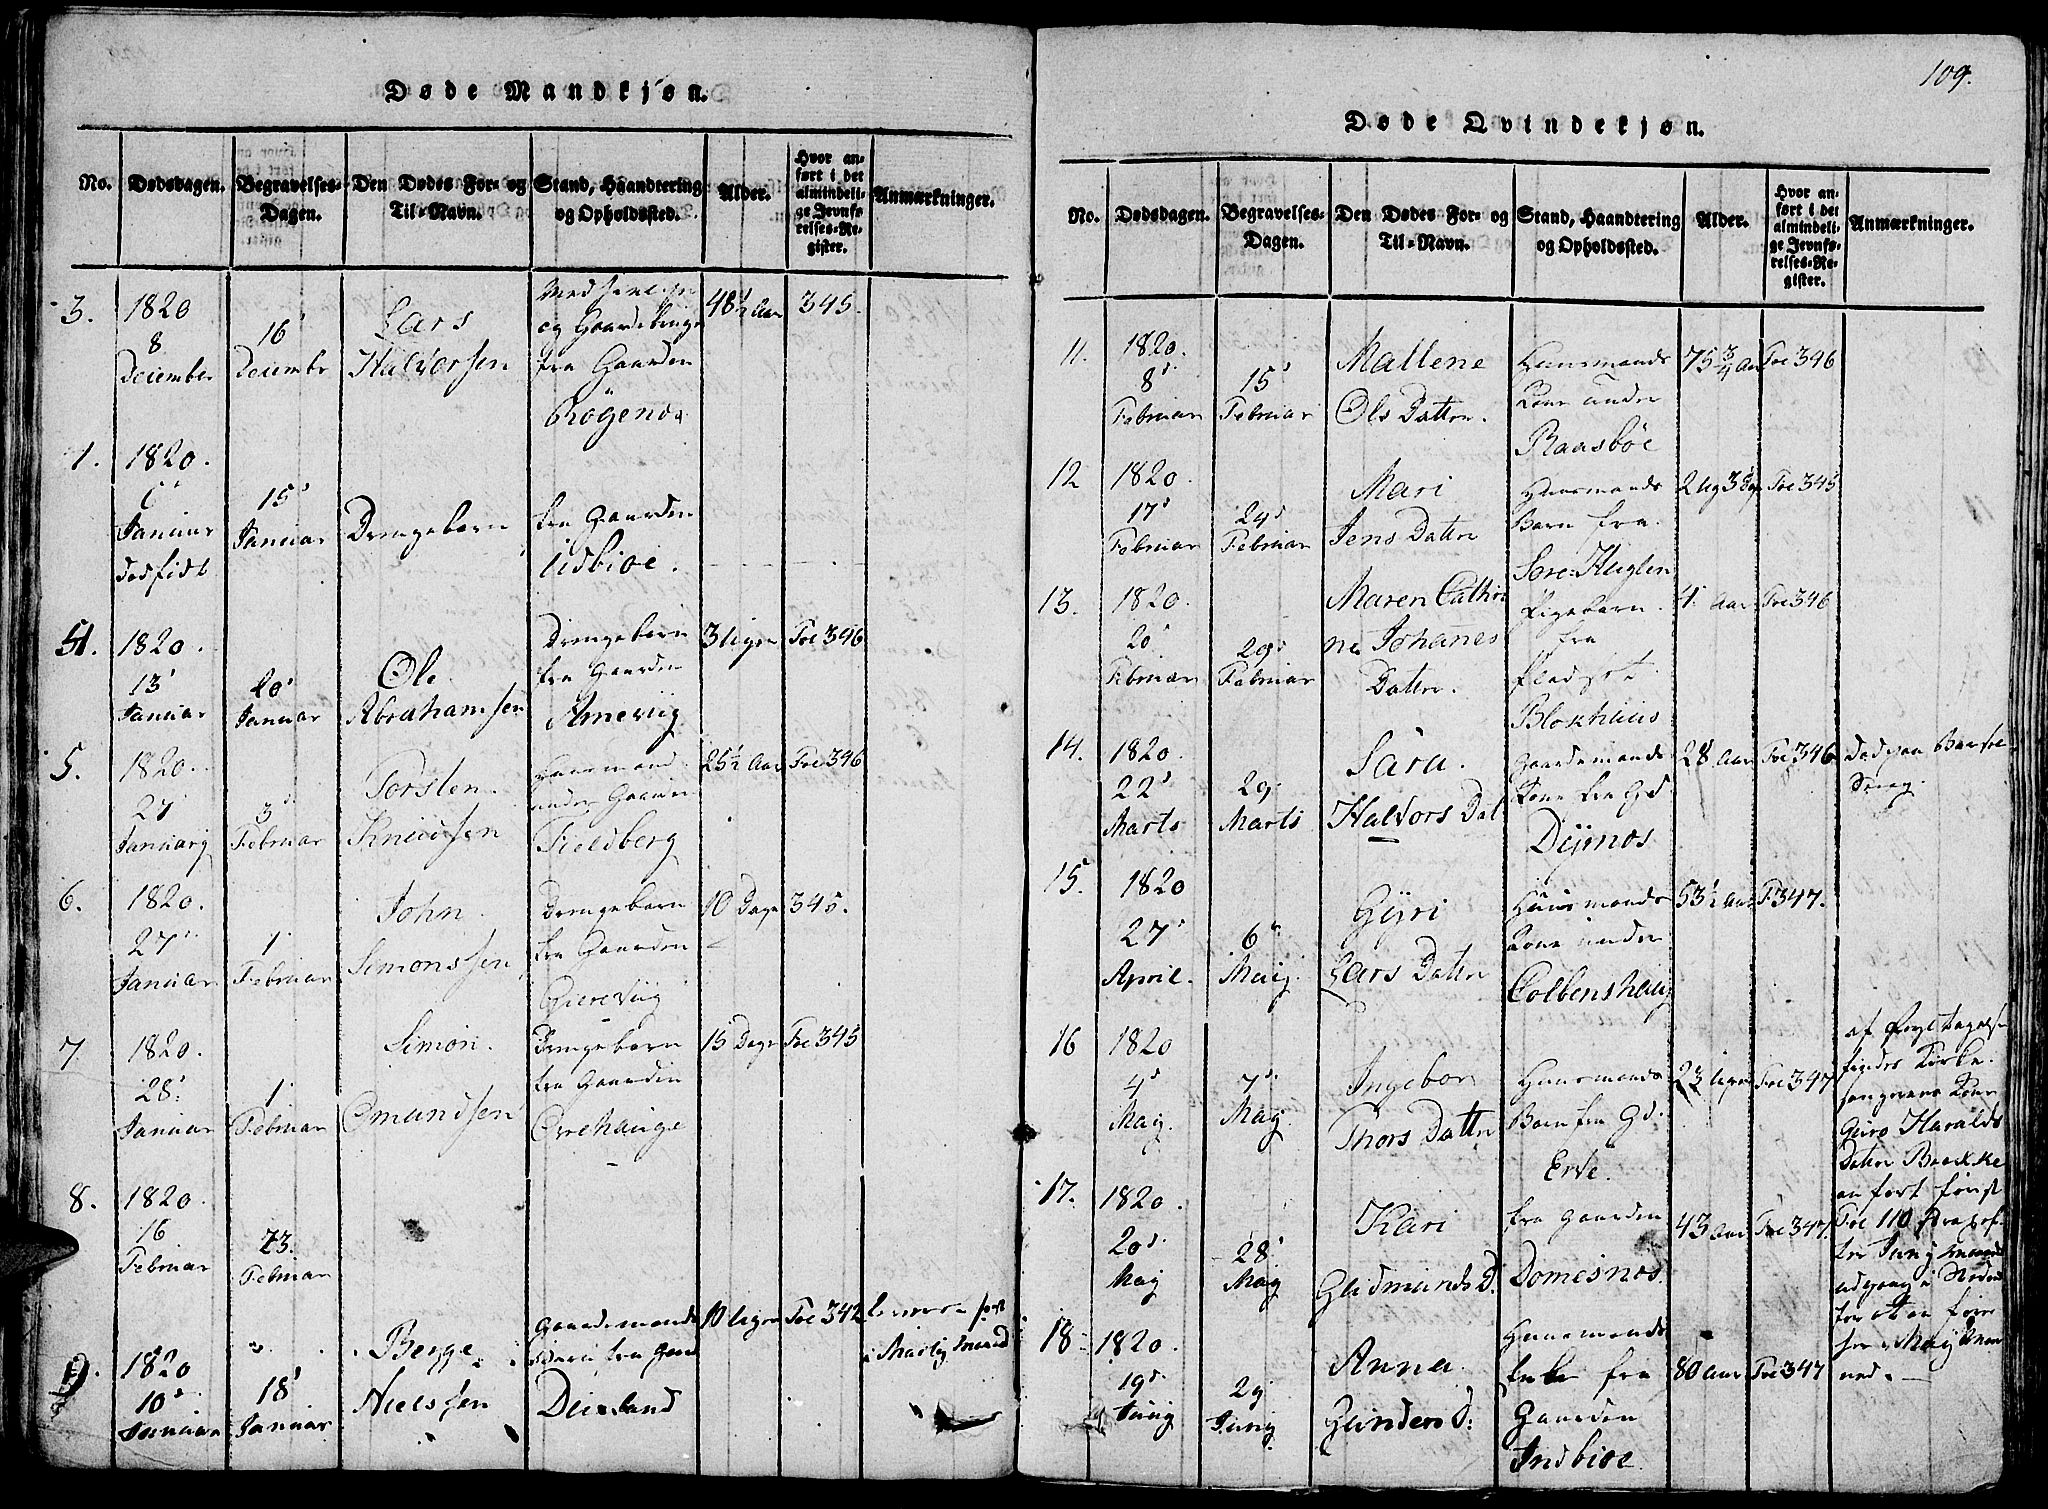 Døde Mandkjøn.
No.
Dødsdagen.
Begravelses-
Dagen.
Den Dødes For- og
Til-Navn.
Stand, Haandtering
og Opholdssted.
Alder.
Hvor an-
ført i det
almindeli-
ge Jevnfø-
relses-Re-
gister.
Anmærkninger.
3.
1820
8
December
16
December
Lars
Halvorsen
og
fra Gaarden
Røgenes
48½ Aar
345.
1.
1820.
6
Januar
dødfødt
15
Januar
Drengebarn
fra Gaarden
Udbioe.
4.
1820.
13
Januar
20
Januar
Ole
Abrahamsen
Drengebarn
fra Gaarden
Ameviig
3 Uger
Foe 346
5.
1820.
27
Januarij
3
Februar
Torsten
Knudsen
Huusmand
under Gaarden
Fieldberg
25½ Aar
Foe 346
6.
1820.
27
Januar
1
Februar
John
Simonssen
Drengebarn
fra Gaarden
10 Dage
345.
7
1820.
28
Januar
1
Februar
Simon.
Omundsen
Drengebarn
fra Gaarden
Orrehauge
15 Dage
Foe 345
8.
1820.
16
Februar
23.
Februar
9.
1820
10
Januar
18
Januar
Berge
Nielssen
Gaardemands
fra
10 Uger
Foe 342
109.
Døde Qvindekjøn.
No.
Dødsdagen.
Begravelses-
Dagen.
Den Dødes For- og
Til-Navn.
Stand, Haandtering
og Opholdssted.
Alder.
Hvor an-
ført i det
almindeli-
ge Jevnfø-
relses-Re-
gister.
Anmærkninger.
11.
1820.
8
Februar
15
Februar
Mallene
Ols Datter.
Huusmands
Kone under
Raasbøe
75¾ Aar
Foe 346
12
1820.
17
Februar
29
Februar
Mari
Jens Datter
Huusmands
Barn fra
Sore: Heglen
Foe 345
13.
1820.
20
Februar
29
Februar
Maren Cathri
ne Johanes
Datter.
Pigebarn.
fra
Blokhuus
4. Aar
Foe 346
14.
1820
22
Marts
29
Marts
Sara.
Halvors Dat
Gaardemands
Kone fra Gd
Dysnos
28 Aar
Foe 346
Død paa Barsel
Seng.
15.
1820
27
April.
6
Maij.
Gyri
Lars Datter
Huusmands
Kone under
Colbenshaug
53½ Aar
F 347.
16
1820
4
May.
7
May.
Ingebor
Thors Datter
Huusmands
Barn fra Gd.
Erve.
23 Uger
Foe 347
af
findes Kirke
sangerens Kone
Guro Haralds
Datter Brekke
anført først
Foe 110
Juny
udgang
for
for May Maa
ned.
17.
1820.
20
May
28
May
Kari
Gudmunds D.
fra Gaarden
Domesnos.
43 Aar
Foe 347.
18
1820.
19
Juny
29
Juny
Anna
Gunders D:
Huusmands
Enke fra
Gaarden
Indbioe
80 Aar
Foe 347